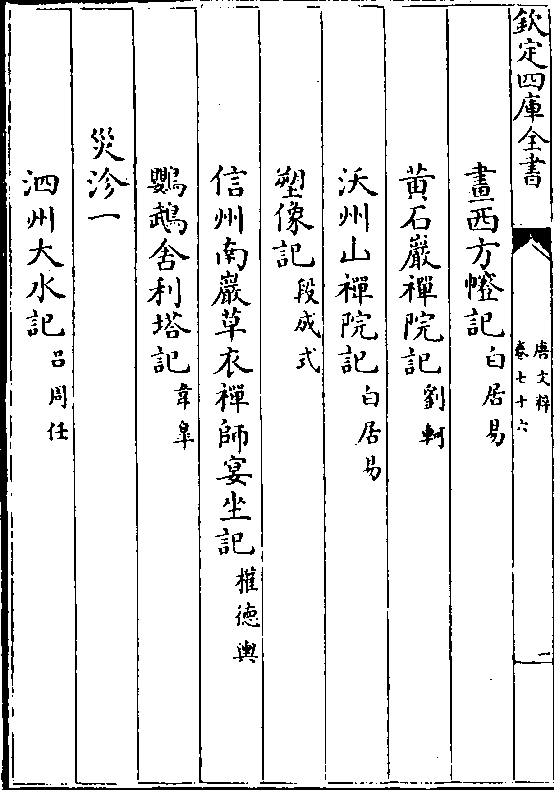 欽定四庫全書
唐文粹
卷七十六
二
畫西方幢記白居易
黄石巖禪院記劉軻
沃州山禪院記白居易
塑像記段成式
信州南巖草衣禪師宴坐記權德輿
鸚鵡舍利塔記韋臯
災沴一
泗州大水記吕周任